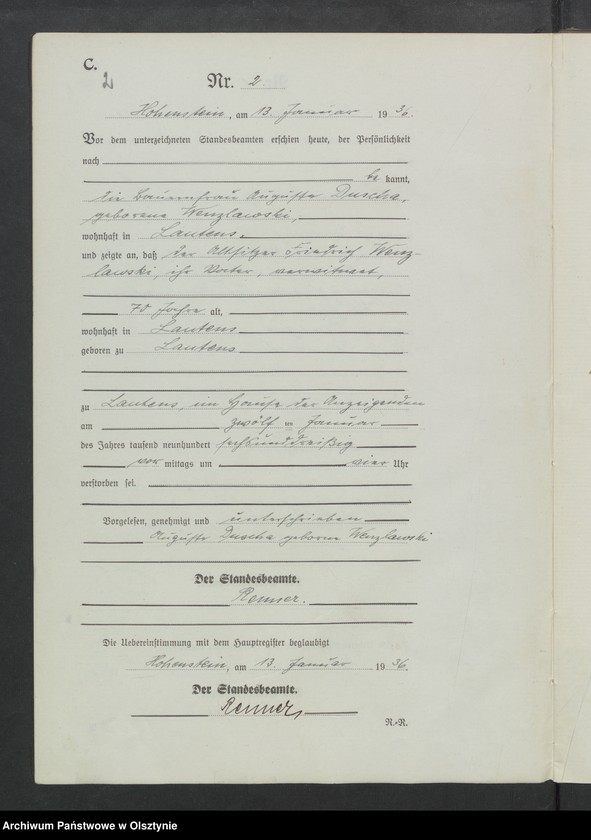 C.
2
Nr. 2.
Hohenstein, am 13. Januar 19 36.
Vor dem unterzeichneten Standesbeamten erschien heute, der Persönlichkeit
nach
be kannt,
die Bauernfrau Auguste Duscha,
geborene Wenzlawski,
wohnhaft in Lautens.
und zeigte an, daß der Altsitzer Friedrich Wenz-
lawski, ihr Vater, verwitwet,
70 Jahre alt,
wohnhaft in Lautens
geboren zu Lautens
zu Lautens, im Hause der Anzeigenden
am zwölf ten Januar
des Jahres tausend neunhundert sechsunddreißig
vor mittags um vier Uhr
verstorben sei.
Vorgelesen, genehmigt und unterschrieben
Auguste Duscha geborene Wenzlawski
Der Standesbeamte.
Renner.
Die Uebereinstimmung mit dem Hauptregister beglaubigt
Hohenstein, am 13. Januar 19 36.
Der Standesbeamte.
Renner
R.-R.
Archiwum Państwowe w Olsztynie